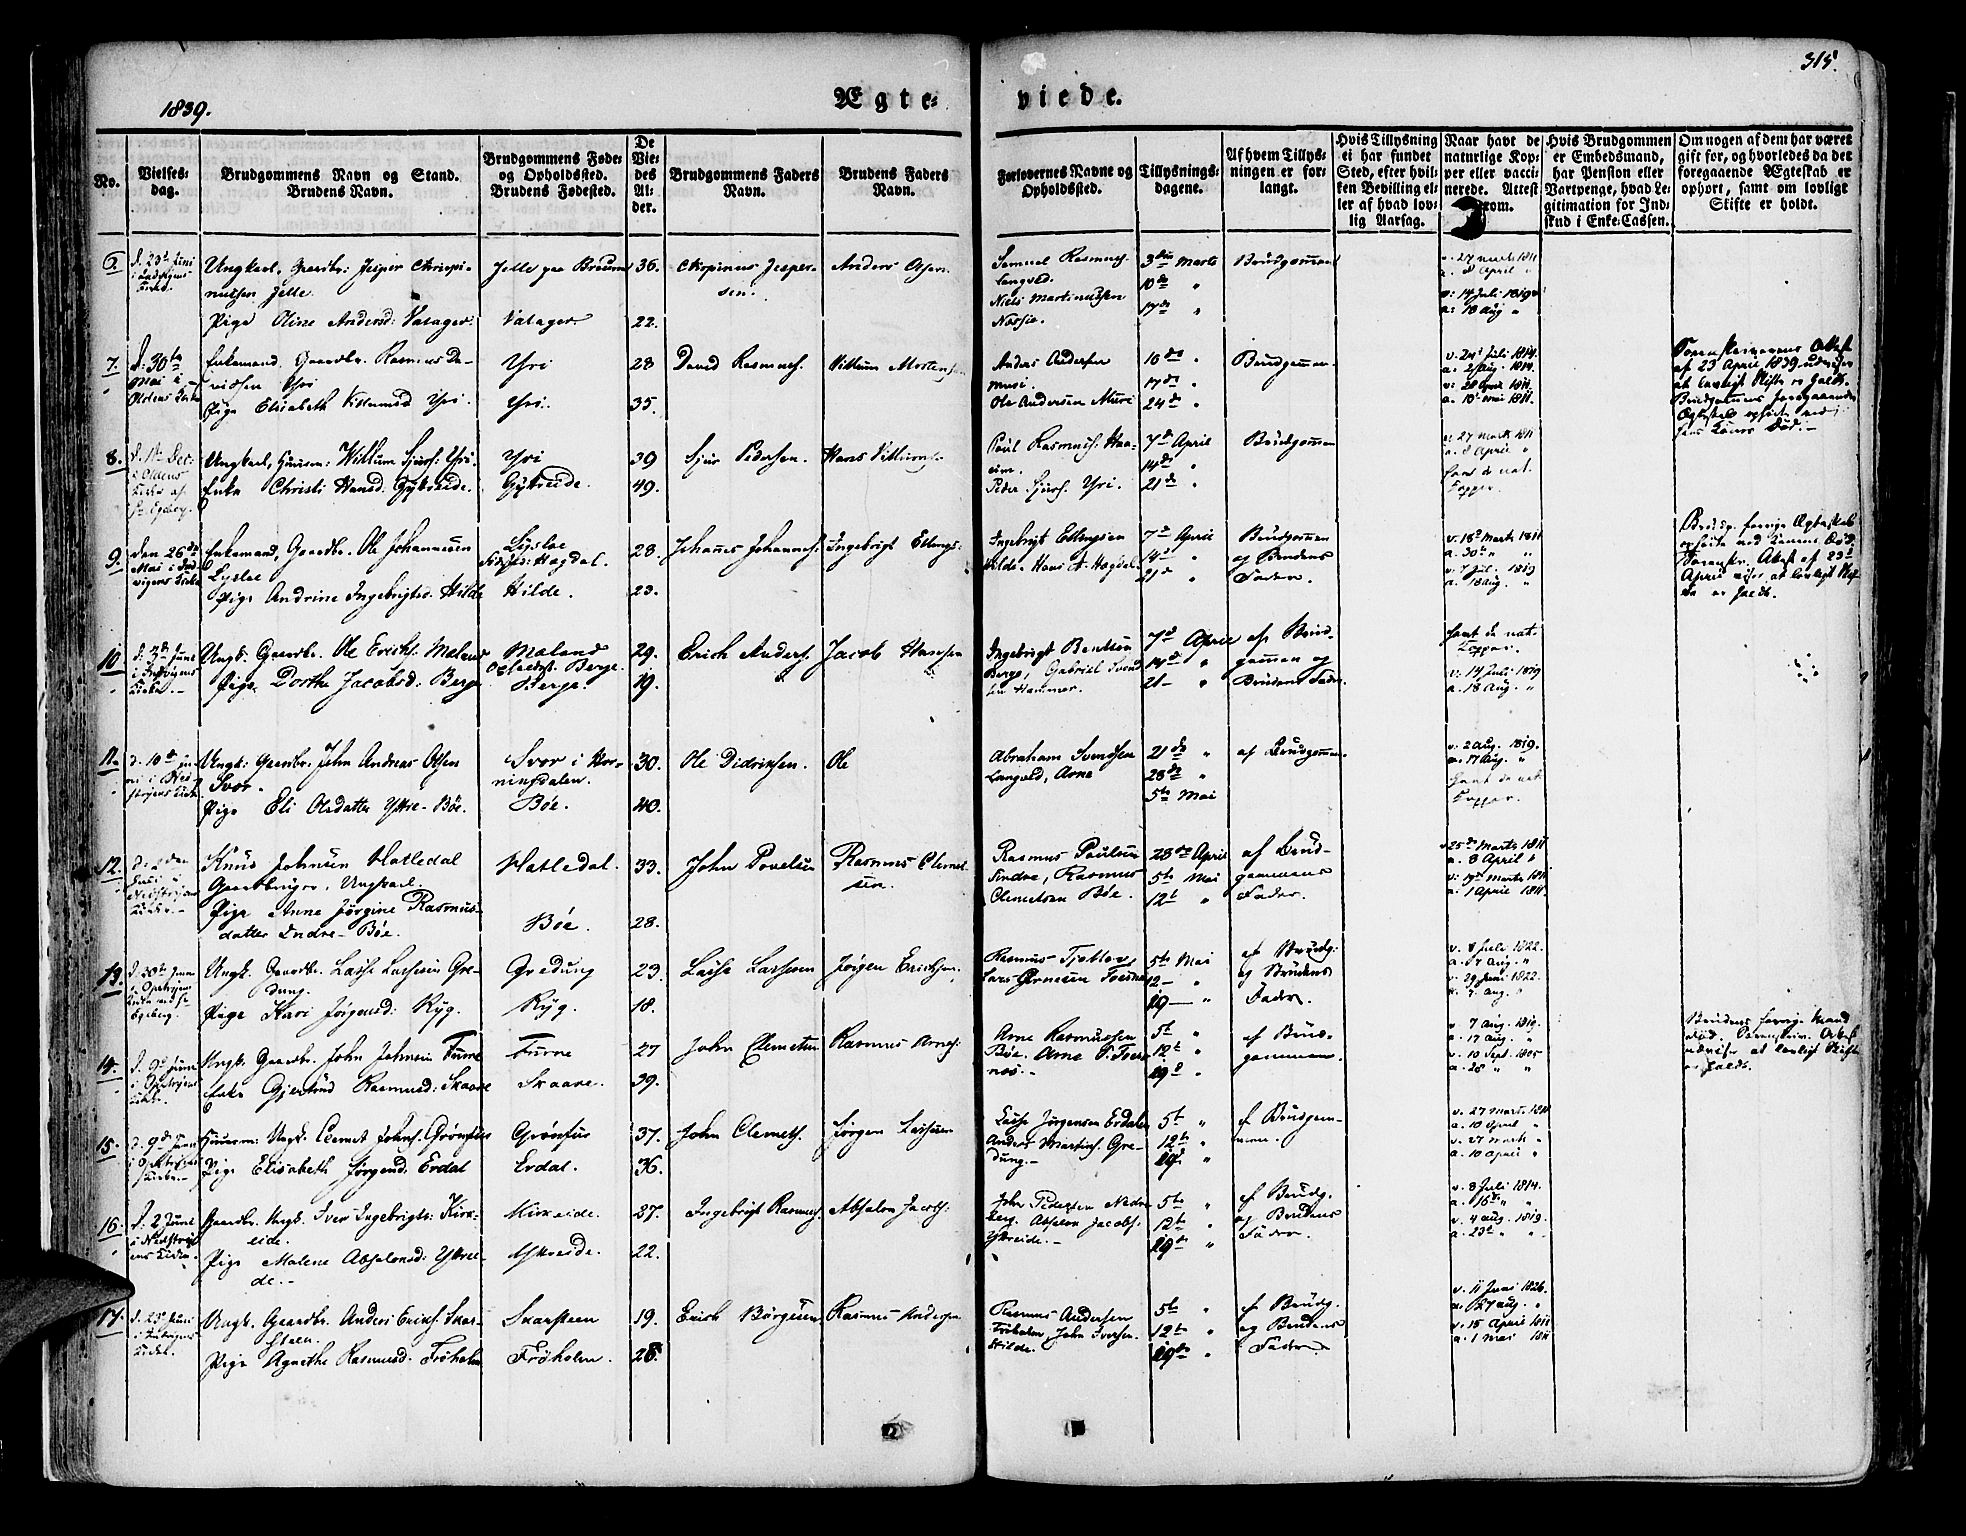 315.
1839.
Ægte- viede.
No.
Vielses-
dag.
Brudgommens Navn og Stand.
Brudens Navn.
Brudgommens Føde-
og Opholdssted.
Brudens Fødested.
De
Vie-
des
Al-
der.
Brudgommens Faders
Navn.
Brudens Faders
Navn.
Forlovernes Navne og
Opholdssted.
Tillysnings-
dagene.
Af hvem Tillys-
ningen er for-
langt.
Hvis Tillysning
ei har fundet
Sted, efter hvil-
ken Bevilling el-
ler af hvad lov-
lig Aarsag.
Naar havt de
naturlige Kop-
per eller vacci-
nerede. Attest
Hvis Brudgommen
er Embedsmand,
har Pension eller
Vartpenge, hvad Le-
gitimation for Ind-
skud i Enke-Cassen.
Om nogen af dem har været
gift før, og hvorledes da det
foregaaende Ægteskab er
ophørt, samt om lovligt
Skifte er holdt.
6. d. 23de Juni
Ungkarl, Gaardbr: Jesper Chrispi-
nussen Jelle.
Pige Oline Andersd: Vatager.
Vatager.
36.
22.
Chrispinus Jesper-
sen.
Anders Olsen
Samuel Rasmus.
Langvld.
Niels Martinussen
3die Marts
10de "
17de "
Brudgommen
v. 27 marts 1811
a. 8 April "
v: 14 Juli 1819
a: 18 aug "
7. d. 30te
Mai i
Oldens Kirke
Enkemand, Gaardbr. Rasmus Da-
vidsen Yri
Pige Elisabeth Villumsd Yri.
Yri
Yri.
28
35.
David Rasmus.
Villum Mortens.
Anders Andersen
Muri
Ole Andersen Muri
10de "
17de "
24de "
Brudgommen
v. 24 Juli 1814.
a. 2 Aug. 1814.
v: 28 April 1811.
a. 10 Mai 1811.
Sorenskriverens Attest
af 23 April 1839 udviser
at lovligt Skifte er holdt.
Brudgommens foregaaende
Ægteskab ophørt ved
hans Kones Død.
8. d. 1te Dec:
i Oldens
Kirke af
Ungkarl, Huusm: Willum Sjurs: Yri.
Enke Christi Hansd. Gytreide.
Yri
Gytreide.
39
49.
Sjur Pedersen.
Hans Villums.
Poul Rasmus. Haa-
eim.
Peder Sjurs. Yri.
7de April
14de "
21de "
Brudgommen
v. 27 marts 1811
a. 8 April "
havt de nat.
Kopper.
9. den 26de
Mai i Ind-
vigens Kirke
Enkemand, Gaardbr. Ole Johannesen
Lysloe
Pige Andrine Ingebrigtsd. Hilde
Lysloe
Hogdal.
Hilde.
28.
23.
Johannes Johanness.
Ingebrigt Ellings.
Ingebrigt Ellingsen
Hilde. Hans A. Hogdal.
7de April
14de "
21de "
Brudgommen
og Brudens
Fader.
v. 18de Marts 1811
a. 30te " "
v. 7 Jul. 1819
a. 18 aug. "
Brudg. forrige Ægteskab
ophørte ved Konens Død.
Sorenskr. Attest af 23de
April viser at lovligt Skif-
te er holdt.
10
i Indvigens
Kirke.
Ungk. Gaardbr. Ole Erichs. Mæland
Pige Dorthe Jacobsd: Berge
Mæland
Opholdst. Berge.
Berge.
29.
19.
Erich Anders.
Jacob Hansen
Ingebrigt Bentsen
Berge, Gabriel Svend-
sen Hammer.
7de April
14de "
21 "
af Brud-
gommen og
Brudens Fader
havt de nat.
Kopper.
v: 14 Juli 1819
a. 18 Aug. "
11. d. 10de Ju-
ni i
Ungk: Gaardbr. John Andreas Olsen
Svor.
Pige Eli Olsdatter Yttre-Böe.
Svor i Hor-
ningdalen.
Böe.
30.
40.
Ole Didriksen.
Ole
Abraham Svendsen
Langvld, Arne
21de "
28de "
5te Mai
af Brudgommen
v. 2 aug. 1819.
a. 17 Aug. "
havt de nat.
Kopper.
12.
Knud Johnsen Hatledal
Gaardbruger, Ungkarl
Pige Anne Jørgine Rasmus-
datter Indre-Böe.
Hatledal.
Böe.
33.
28.
John Povelsen
Rasmus Clemet-
sen.
Rasmus Paulsen
Indre, Rasmus
Clemetsen Böe.
28de April
5te Mai
12te "
af Brud-
gommens
Fader.
25de Marts 1811
a. 8 April "
v. 19de Marts 1811
a. 1 April 1811.
13.
Ungk. Gaardbr. Lasse Lassesen Gre-
dung.
Pige Kari Jørgensd: Ryg.
Gredung
Ryg.
23.
18.
Lasse Lassesen
Jørgen Erichsen.
5te Mai
12 - "
19 - "
af Brudg:
og Brudens
Fader.
v. 8 Juli 1822.
a. 7 Aug. "
v. 29 Juni 1822.
a. 7. aug. "
14. d. 9de Juni
Ungk. Gaardbr. John Johnsen Furne
Enke Gjertrud Rasmusd: Skaare
Furne
Skaare.
27
39.
John Clemetsen
Rasmus Arnes.
Arne Rasmussen
5te "
12te "
19de "
af Brud-
gommen.
v. 7 Aug. 1819.
a. 17 Aug. "
v. 10 Sept. 1805
a. 28 " "
Brudens forrige Mand
død. Sorenskriv. Attest
udviser at lovligt Skifte
er holdt.
15. d. 9de Juni
Huusm: Ungk. Clemet Johns. Grønfur
Pige Elisabeth Jørgend. Erdal
Grønfur
Erdal.
37.
36.
John Clemets.
Jørgen Lassesen
Lasse Jørgensen Erdal
Anders Martins. Gre-
dung.
5te "
12te "
19de "
af Brudgom-
men.
v. 27 Marts 1811
a. 10 April "
v. 27 Marts "
a. 10 April "
16. d. 2 Juni
Gaardbr. Ungk. Iver Ingebrigts: Kirk-
eide.
Pige Malene Absalonsd: Ytreei-
de.
Kirkeide.
Ytreeide.
37.
22.
Ingebrigt Rasmus.
Absalon Jacobs.
John Pedersen Nedre
berg. Absalon Jacobs.
Ytreeide.
5te "
12te "
19de "
af Brudg.
og Brudens
Fader
v. 8 Juli 1814.
a. 16de "
v. 4 aug. 1819.
a. 23de " "
17. d. 23de Juni
i Indvigens
Kirke.
Ungk. Gaardbr. Anders Erichs. Skar-
steen.
Pige Agnethe Rasmusd. Frøholm
Skarsteen
Frøholm.
19.
28.
Erich Børgesen
Rasmus Andersen
Rasmus Andersen
Frøholm, John Iversen
Hilde.
5te "
12te "
19de "
af Brudg.
og Brudens
Fader
v. 11 Juni 1826.
a. 27 aug. "
v. 15 April 1811
a. 1 Mai 1811